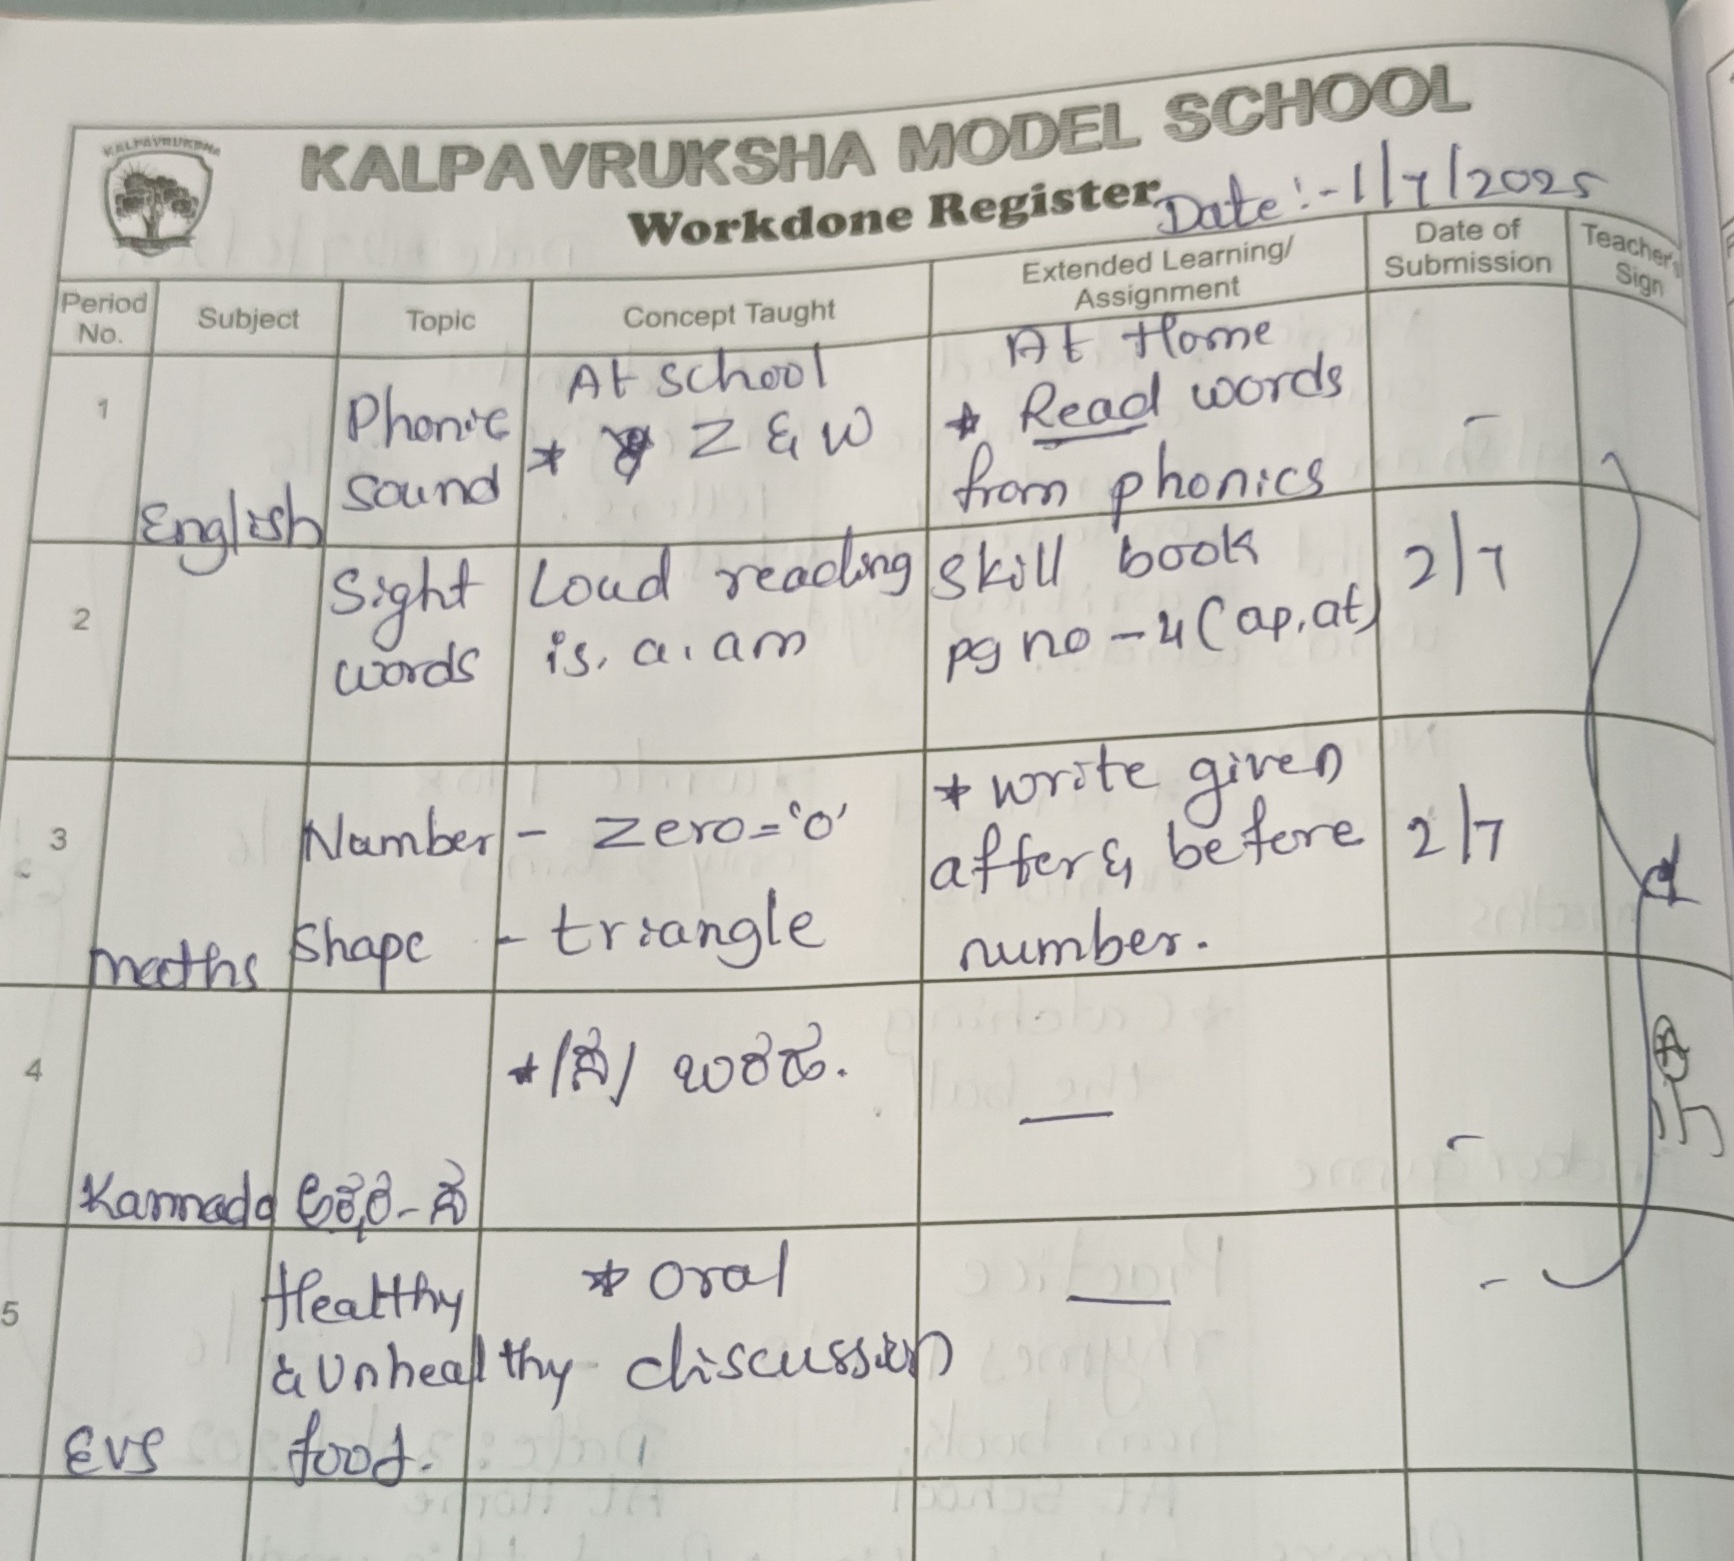 KALPAVRUKSHA
KALPAVRUKSHA MODEL SCHOOL
Workdone Register
Date:-1/7/2025
Period No.
Subject
Topic
Concept Taught
Extended Learning/ Assignment
Date of Submission
Teacher's Sign
1
English
Phonic
sound
At school
* Z & W
At Home
* Read words
from phonics
-
2
Sight
words
Loud reading
is, a, am
skill book
pg no - 4 (ap, at)
2/7
3
maths
Number - zero='0'
Shape - triangle
* write given
after & before
number.
2/7
4
Kannada
*
—
-
5
EVS
Healthy
& Unhealthy
food.
* Oral
discussion
—
-